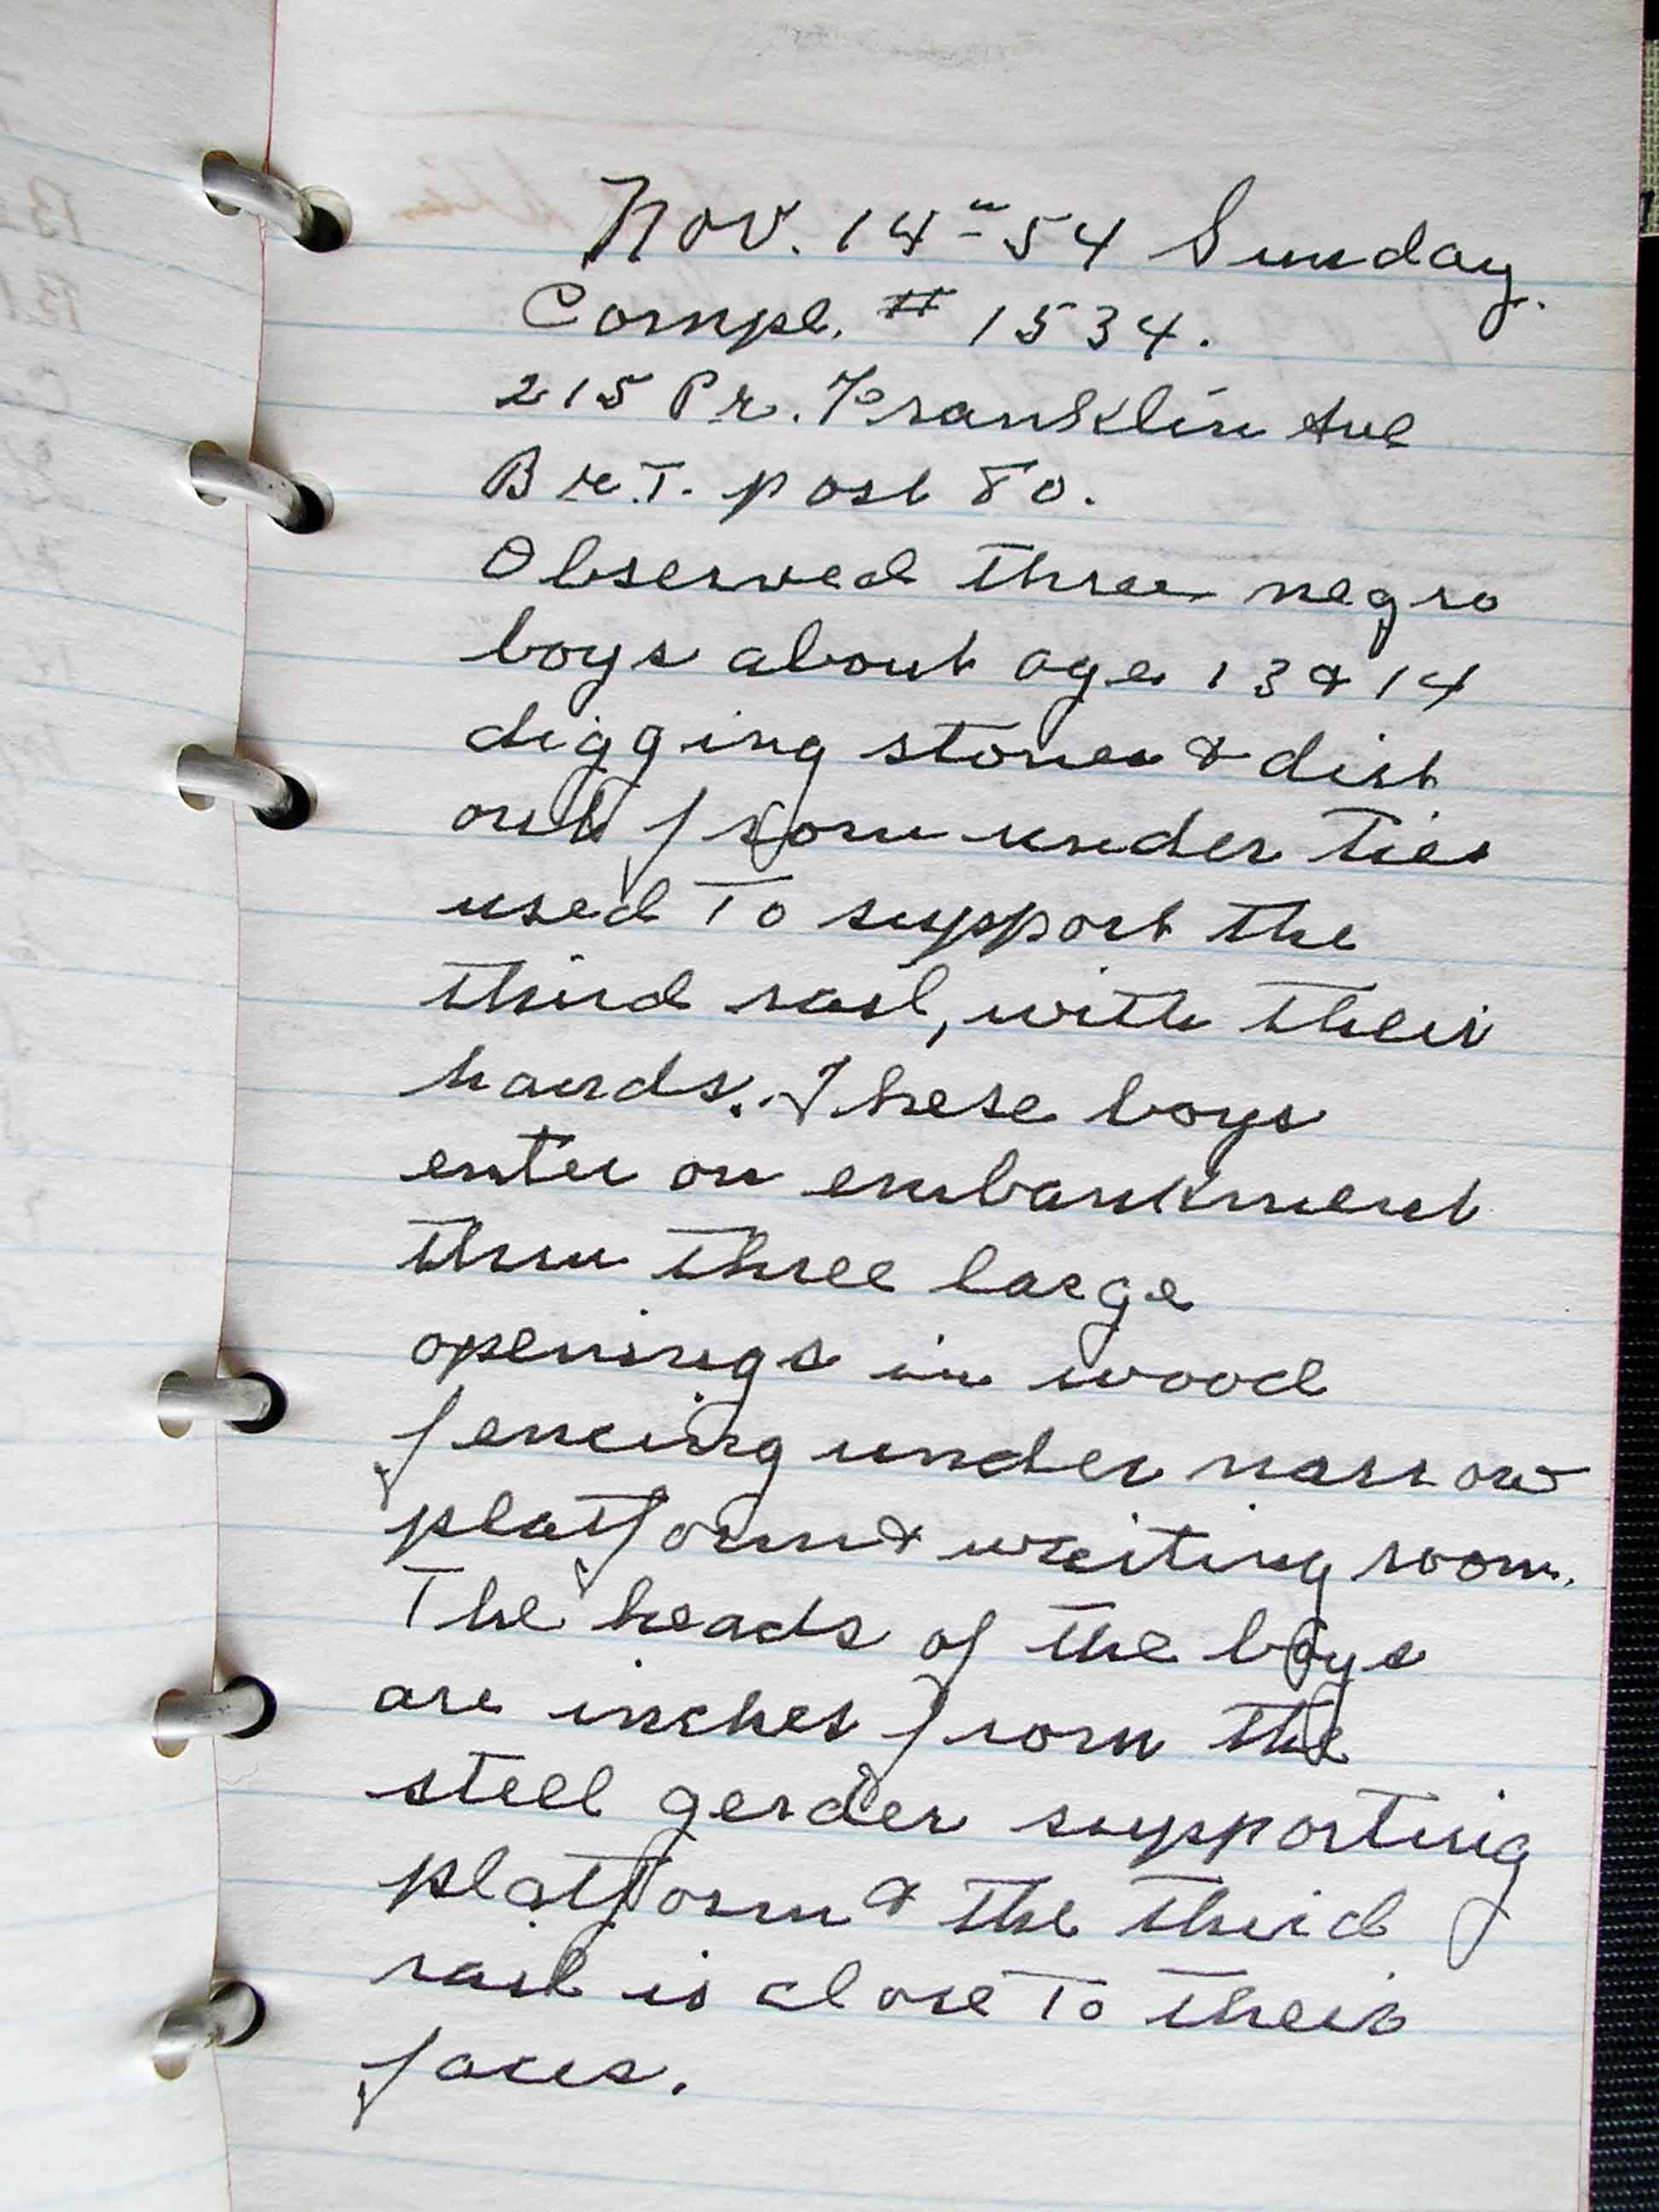 Nov. 14-54 Sunday.
Compl. # 1534.
215 Pr. Franklin Ave
B M.T. post 80.
Observed three negro
boys about age 13 & 14
digging stones & dirt
out from under ties
used to support the
third rail, with their
hands. These boys
enter on embankment
thru three large
openings in wood
fencing under narrow
platform & waiting room.
The heads of the boys
are inches from the
steel gerder supporting
platform & the third
rail is close to their
faces.